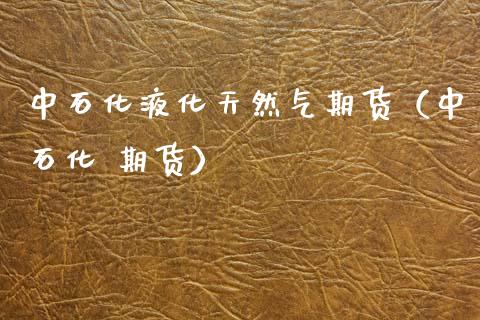 中石化液化天然气期货（中
石化 期货）